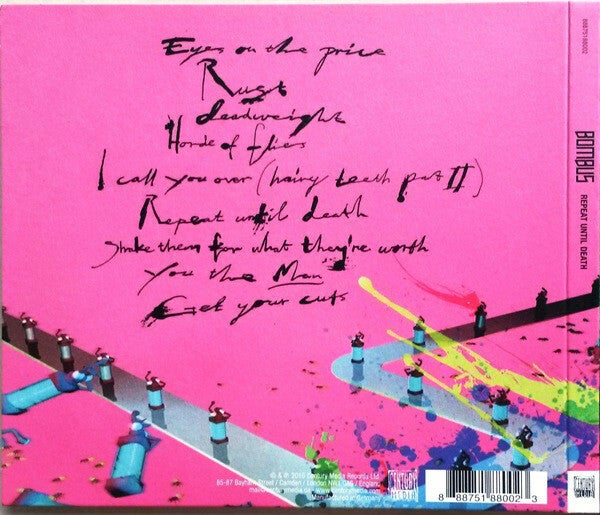 Eyes on the price
Rust
deadweight
Horde of flies
I call you over (hairy teeth part II)
Repeat until death
Shake them for what they're worth
You the Man
Get your cuts
Century Media Records Ltd.
85-87 Bayham Street / Camden / London NW1 0AG / England
mail@centurymedia.de • www.centurymedia.com
Manufactured in Germany
CENTURY
MEDIA
8 88751 88002 3
88875188002
BOMBUS
REPEAT UNTIL DEATH
CENTURY
MEDIA